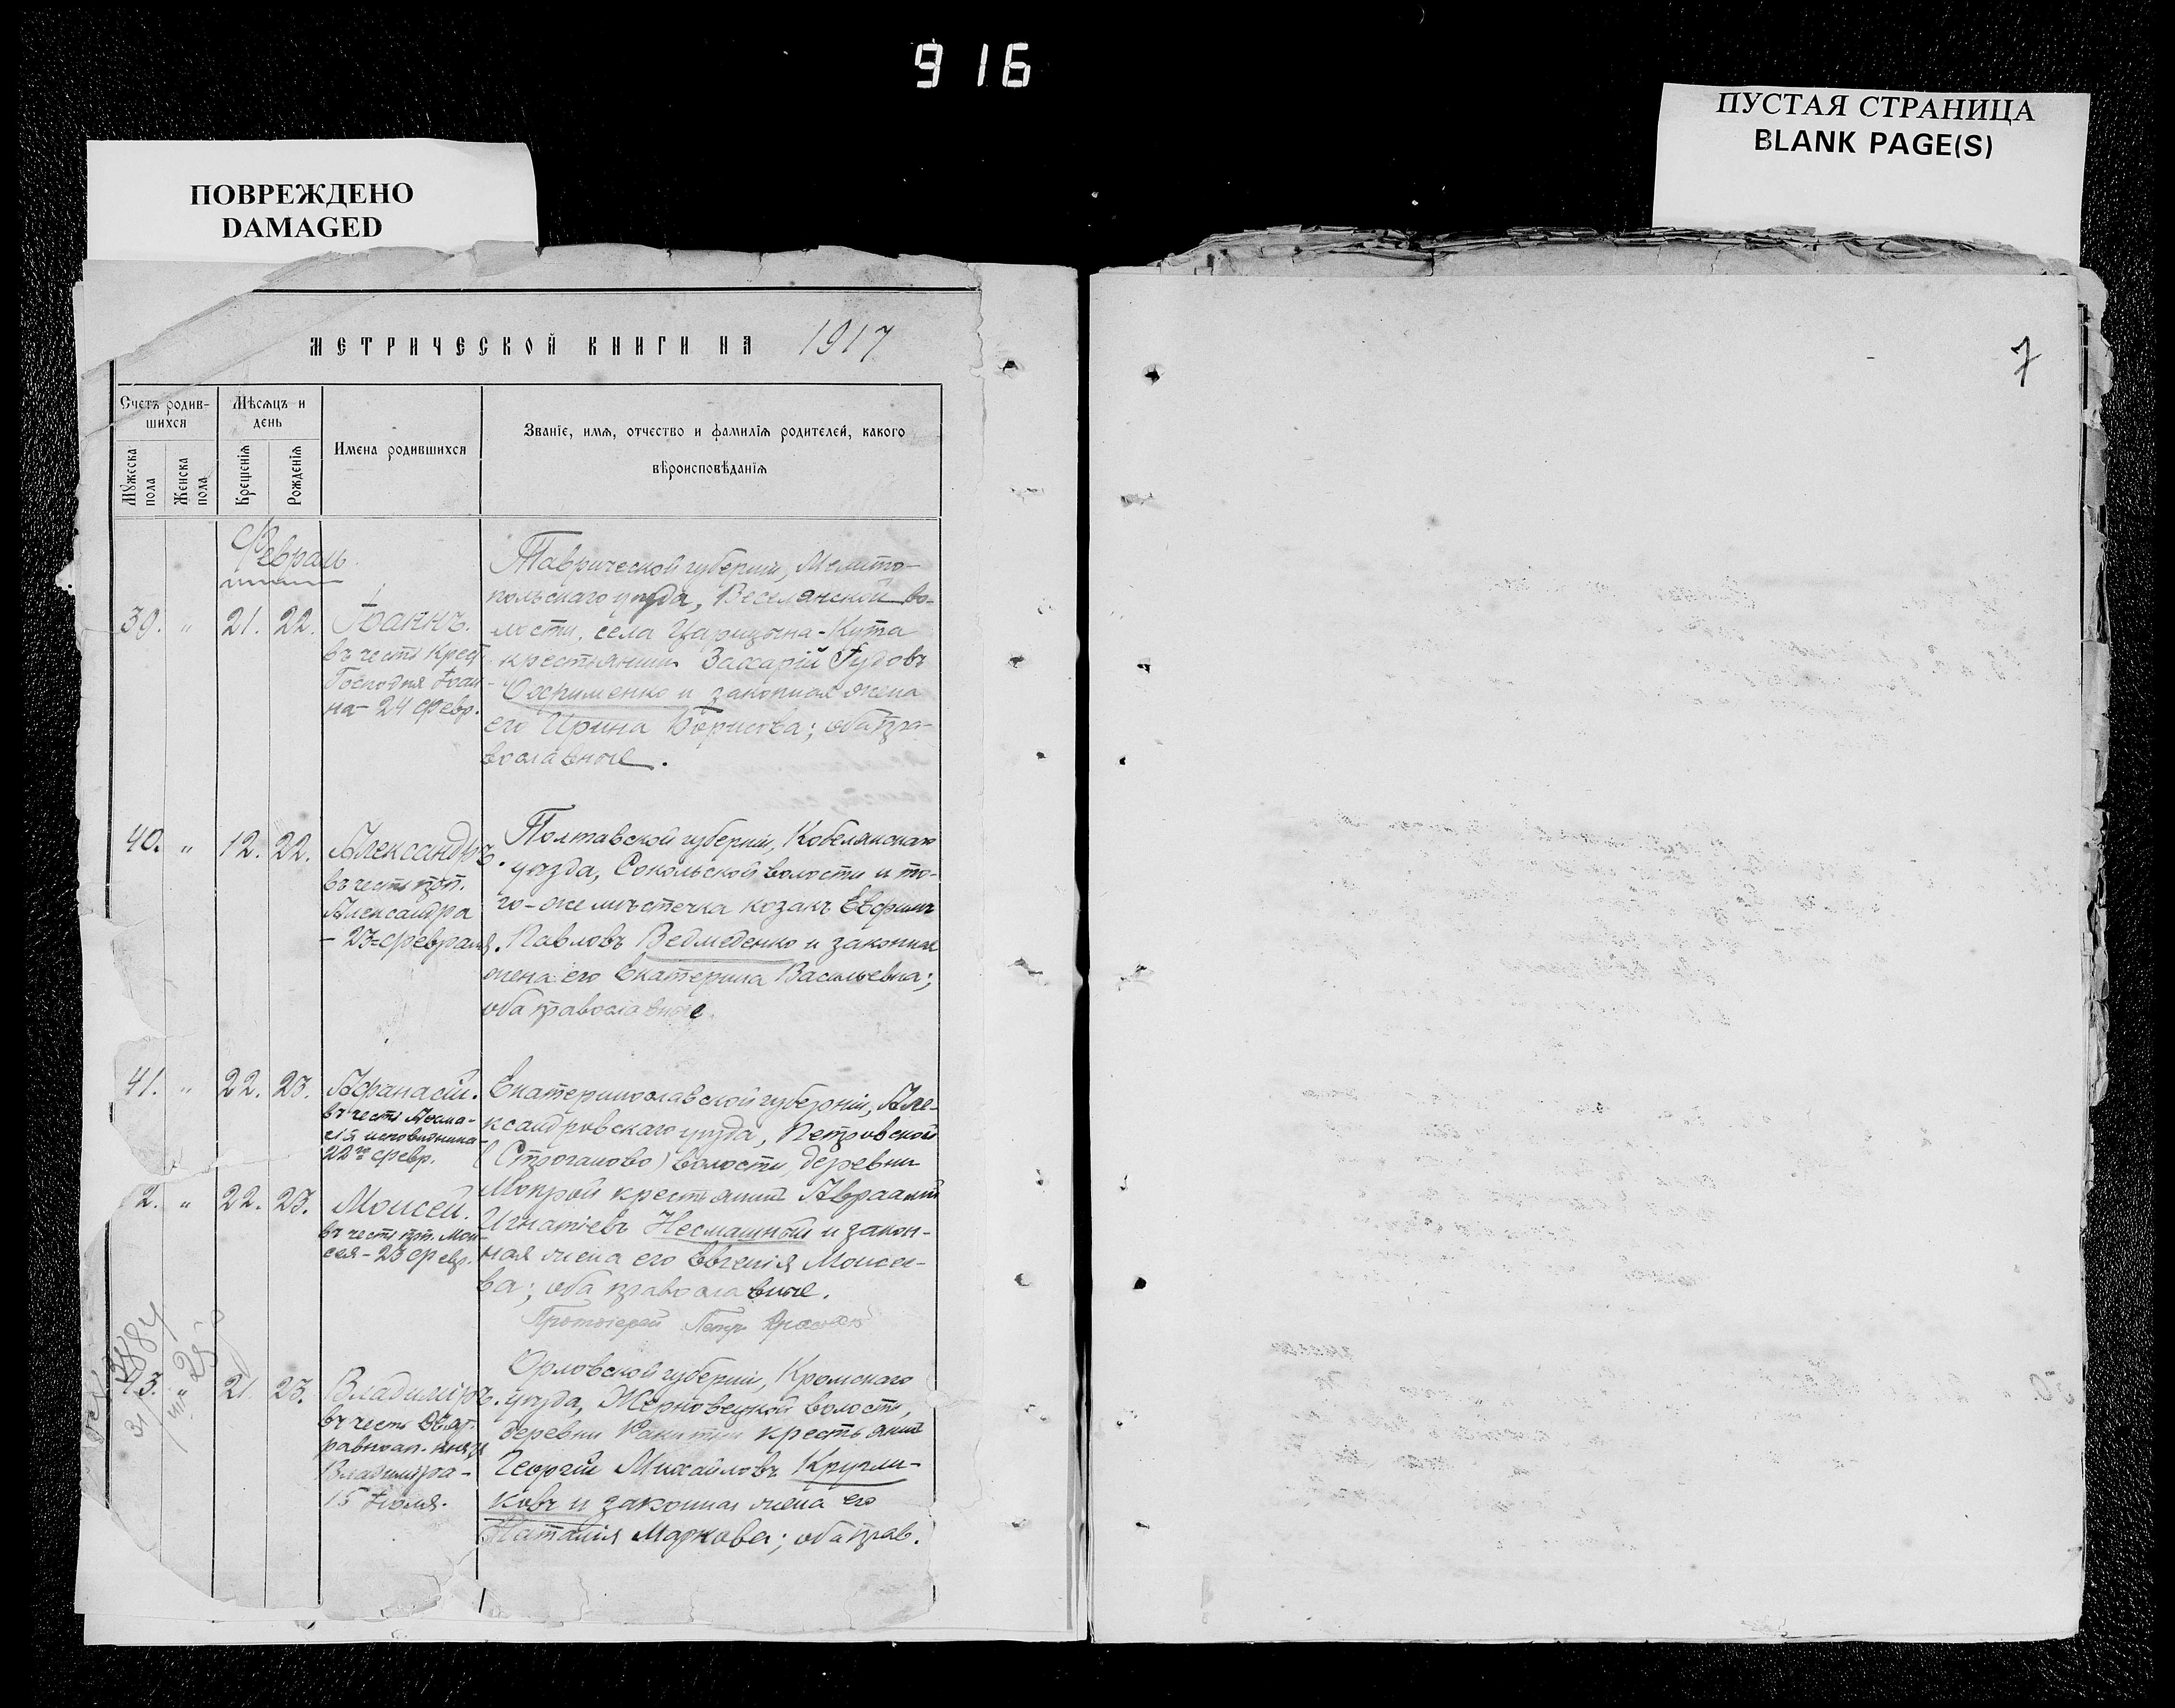 916
ПОВРЕЖДЕНО
DAMAGED
ПУСТАЯ СТРАНИЦА
BLANK PAGE(S)
7
МЕТРИЧЕСКОЙ КНИГИ НА 1917
Счетъ родив-
шихся
Мужеска
пола
Женска
пола
Мѣсяцъ и
день
Крещенія
Рожденія
Имена родившихся
Званіе, имя, отчество и фамилія родителей, какого
вѣроисповѣданія
Февраль
39. " 21. 22. Іоаннъ.
въ честь Крест.
Господня Іоан-
на - 24 февр.
Таврической губерніи, Мелито-
польскаго уѣзда, Веселянской во-
лости, села Царицына-Кута
крестьянинъ Захарій
и законная жена
его Ирина Борисова; оба пра-
вославные.
40. " 12. 22. Александръ.
въ честь прп.
Александра
- 23 = февраля.
Полтавской губерніи, Кобелякскаго
уѣзда, Сокольской волости и то-
го-же мѣстечка козакъ
Павловъ Ведмеденко и законная
жена его Екатерина Васильевна;
оба православные.
41. " 22. 23. Афанасій.
въ честь Афана-
сія исповѣдника
22го февр.
Екатеринославской губерніи, Але-
ксандровскаго уѣзда, Петровской
(Строганово) волости, деревни
Мокрой крестьянинъ Авраамій
Игнатіевъ Несмашный и закон-
ная жена его Евгенія Моисее-
ва; оба православные.
2. " 22. 23. Моисей.
въ честь прп. Мои-
сея - 23 февр.
Протоіерей Петръ
3884
3. " 21. 23. Владиміръ.
въ честь Св.
равноап. князя
Владиміра -
15 Іюля.
Орловской губерніи, Кромскаго
уѣзда, Жерновецкой волости,
деревни крестьянинъ
Георгій Михайловъ Кругли-
ковъ и законная жена его
Наталія Маркова; оба прав.